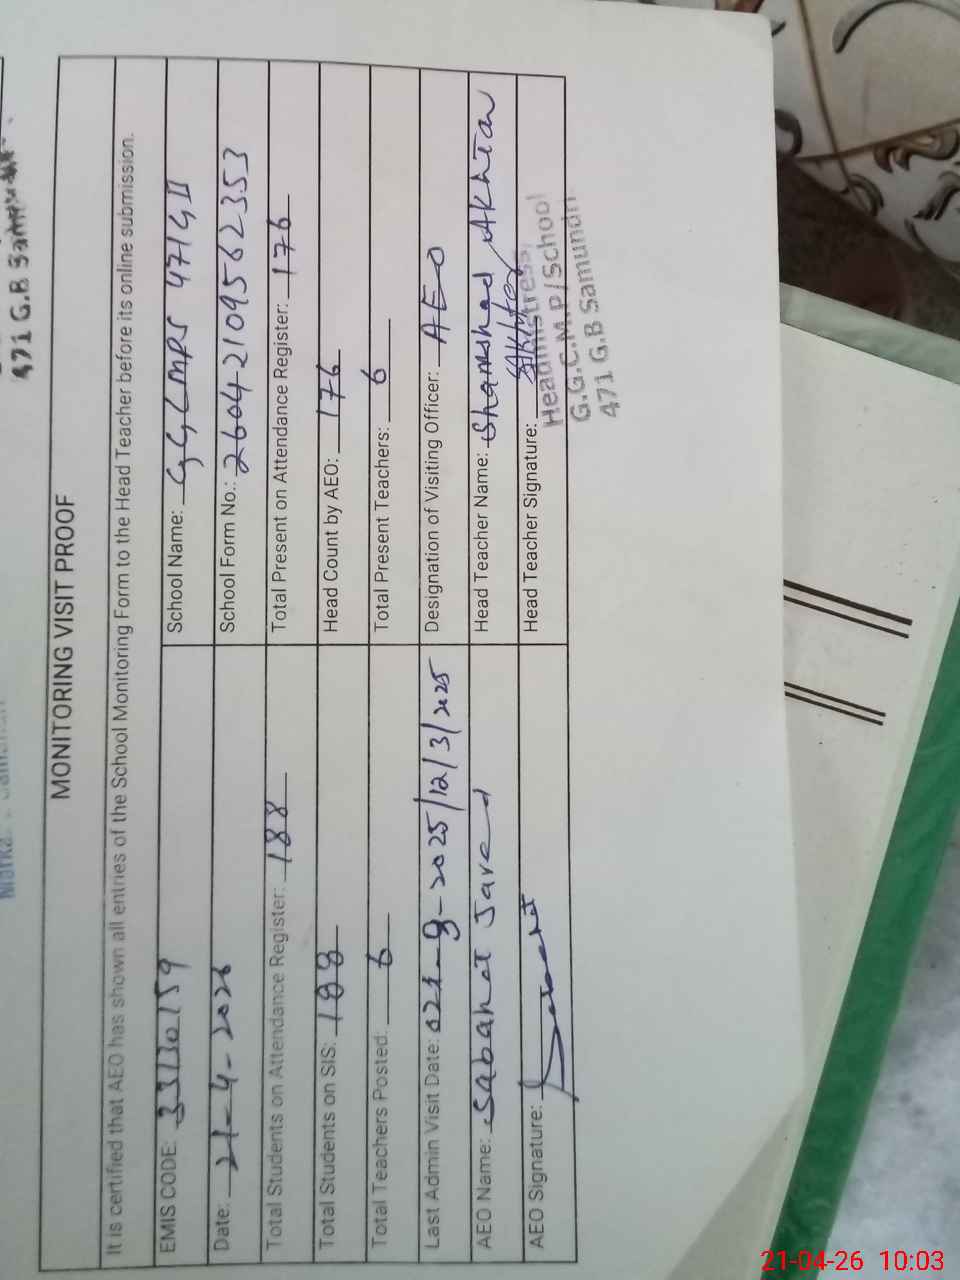 471 G.B Samundri
MONITORING VISIT PROOF
It is certified that AEO has shown all entries of the School Monitoring Form to the Head Teacher before its online submission.
EMIS CODE: 33130159 School Name: GGCMPS 471GB
Date: 21-4-2026 School Form No.: 26042109562353
Total Students on Attendance Register: 188 Total Present on Attendance Register: 176
Total Students on SIS: 188 Head Count by AEO: 176
Total Teachers Posted: 6 Total Present Teachers: 6
Last Admin Visit Date: 2025/12/3/2025 Designation of Visiting Officer: AEO
AEO Name: Sabahat Javed Head Teacher Name: Shamshad Akhtar
AEO Signature: Sabahat Head Teacher Signature: Akhtar
Headmistress
G.G.C.M.P/School
471 G.B Samundri
21-04-26 10:03